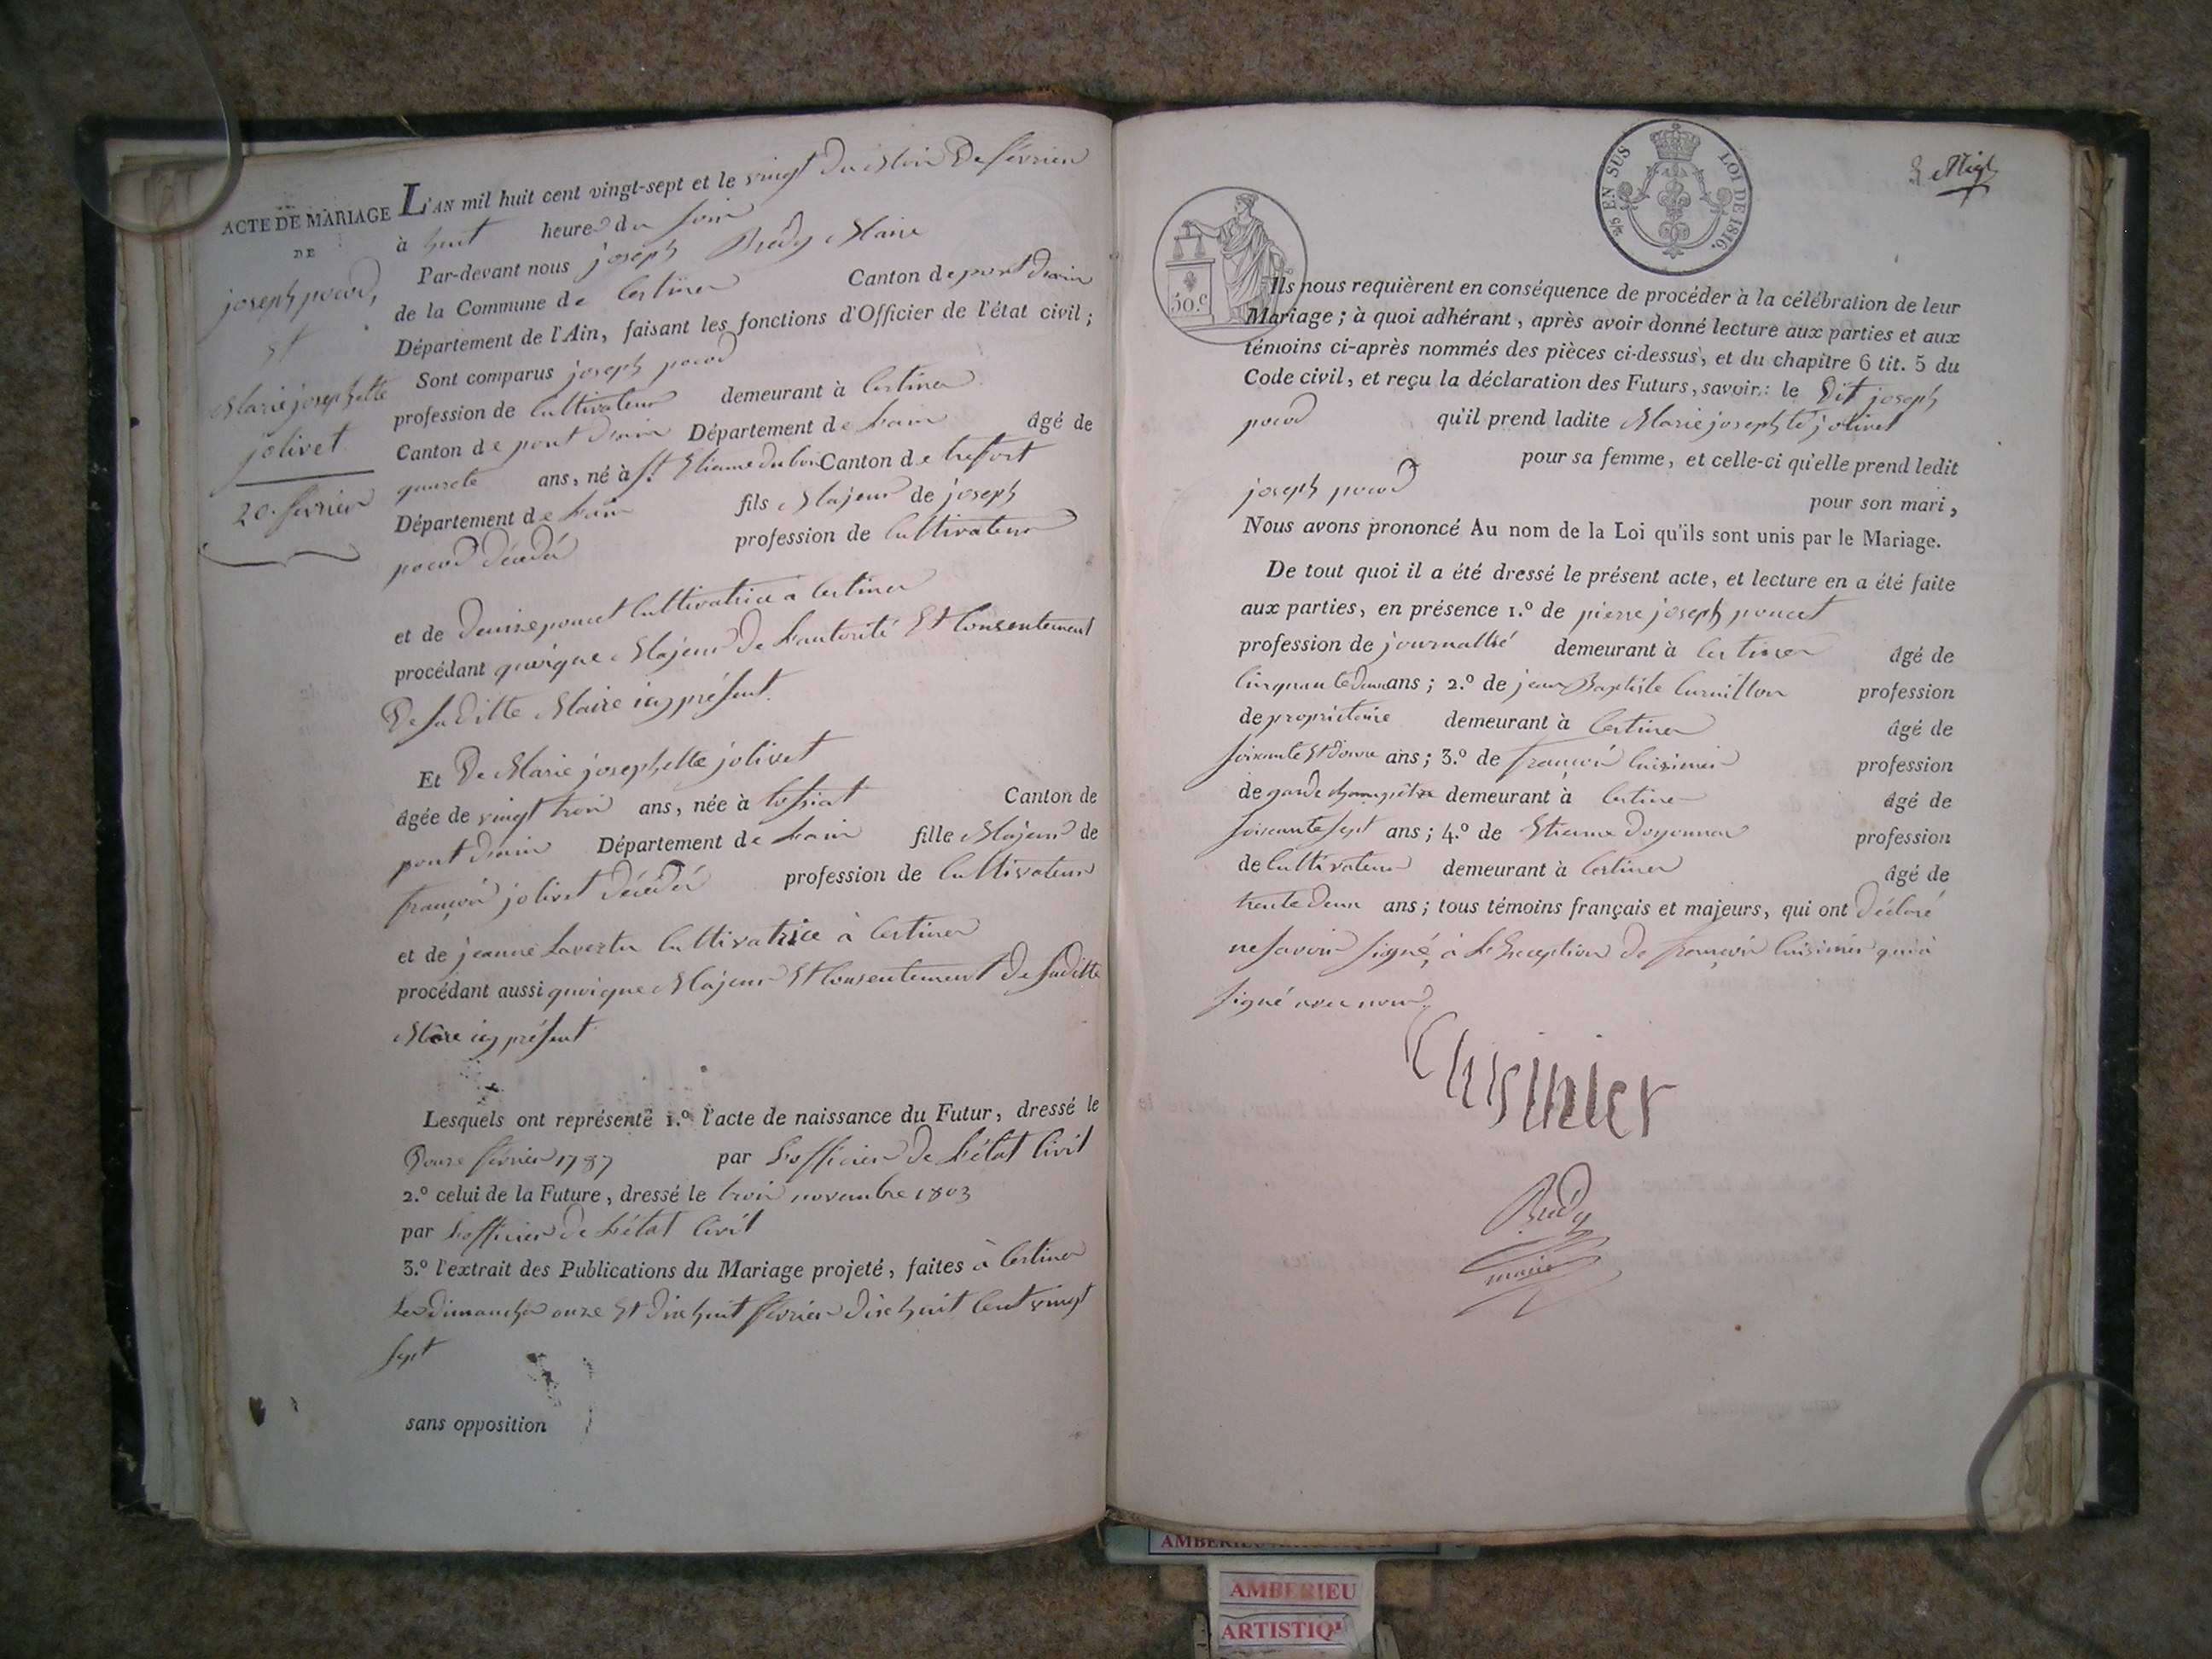 ACTE DE MARIAGE
DE
joseph pocod,
et
Marie josephette
jolivet
20. février
L'AN mil huit cent vingt-sept et le vingt du Mois De février
à huit heures du soir
Par-devant nous joseph Maire
de la Commune de Certines Canton de pont dain
Département de l'Ain, faisant les fonctions d'Officier de l'état civil;
Sont comparus joseph pocod
profession de Cultivateur demeurant à Certines
Canton de pont dain Département de Lain âgé de
quarete ans, né à St. Etienne du bois Canton de trefort
Département de Lain fils Majeur de joseph
pocod décédé profession de Cultivateur
et de Denise poncet Cultivatrice a Certines
procédant quoique Majeur De Lautorité Et Consentement
De saditte Maire icy présent.
Et De Marie josephette jolivet
âgée de vingt trois ans, née à tossiat Canton de
pont dain Département de Lain fille Majeur de
françois jolivet décédé profession de Cultivateur
et de jeanne Cultivatrice à Certines
procédant aussi quoique Majeur Et Consentement De saditte
Mère icy présent
Lesquels ont représenté 1.º l'acte de naissance du Futur, dressé le
Douze février 1787 par Lofficier De Létat Civil
2.º celui de la Future, dressé le trois novembre 1803
par Lofficier de Létat Civil
3.º l'extrait des Publications du Mariage projeté, faites à Certines
Les dimanches onze Et dix huit février dix huit Cent vingt
sept
sans opposition
5/10 EN SUS LOI DE 1816.
50.C
Ils nous requièrent en conséquence de procéder à la célébration de leur
Mariage; à quoi adhérant, après avoir donné lecture aux parties et aux
témoins ci-après nommés des pièces ci-dessus, et du chapitre 6 tit. 5 du
Code civil, et reçu la déclaration des Futurs, savoir: le Dit joseph
pocod qu'il prend ladite Marie josephte jolivet
pour sa femme, et celle-ci qu'elle prend ledit
joseph pocod pour son mari,
Nous avons prononcé Au nom de la Loi qu'ils sont unis par le Mariage.
De tout quoi il a été dressé le présent acte, et lecture en a été faite
aux parties, en présence 1.º de pierre joseph poncet
profession de journallié demeurant à Certines âgé de
Cinquante deux ans; 2.º de jean Baptiste profession
de proprietaire demeurant à Certines âgé de
soixante Et douze ans; 3.º de françois Cuisinier profession
de garde champêtre demeurant à Certines âgé de
soixante sept ans; 4.º de Etienne profession
de Cultivateur demeurant à Certines âgé de
trente deux ans; tous témoins français et majeurs, qui ont déclaré
ne savoir signé, à Lexception de françois Cuisinier qui a
signé avec nous.
Cuisinier
maire
AMBERIEU
ARTISTIQ